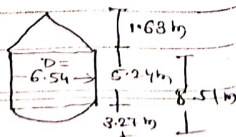 1.63 m
D =
6.54
5.24 m
8.51 m
3.27 m